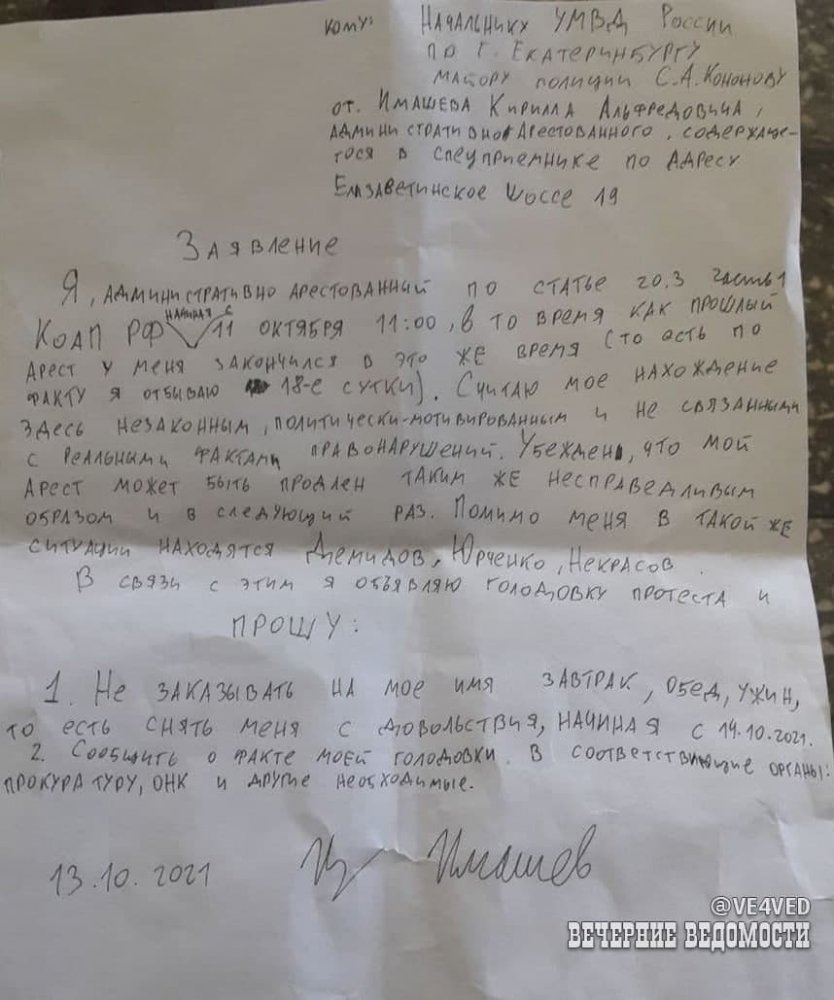 кому: Начальнику УМВД России
по г. Екатеринбургу
майору полиции С.А. Кононову
от. Имашева Кирилла Альфредовича,
административно арестованного, содержаще-
гося в спецприемнике по адресу
Елизаветинское шоссе 19
Заявление
Я, административно арестованный по статье 20.3 часть 1
начиная с
КоАП РФ 11 октября 11:00, в то время как прошлый
арест у меня закончился в это же время (то есть по
факту я отбываю 18-е сутки). Считаю мое нахождение
здесь незаконным, политически-мотивированным и не связанными
с реальными фактами правонарушений. Убежден, что мой
арест может быть продлен таким же несправедливым
образом и в следующий раз. Помимо меня в такой же
ситуации находятся Демидов, Юрченко, Некрасов.
В связи с этим я объявляю голодовку протеста и
ПРОШУ:
1. Не заказывать на мое имя завтрак, обед, ужин,
то есть снять меня с довольствия, начиная с 14.10.2021.
2. Сообщить о факте моей голодовки в соответствующие органы:
прокуратуру, ОНК и другие необходимые.
13.10.2021 Имашев
@VE4VED
ВЕЧЕРНИЕ ВЕДОМОСТИ